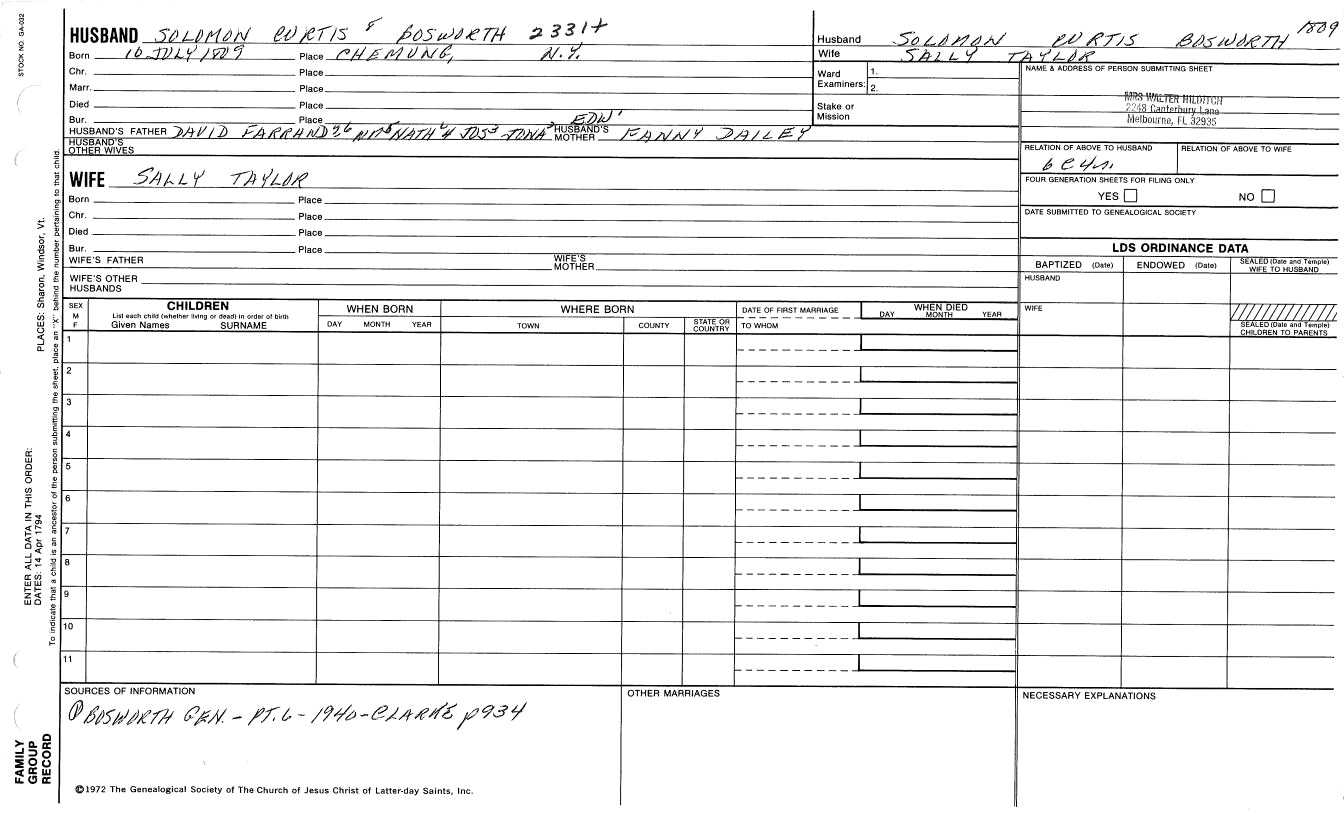 STOCK NO. GA-032
HUSBAND SOLOMON CURTIS 8 BOSWORTH 2331+
Born 10 JULY 1809 Place CHEMUNG, N.Y.
Chr. Place
Marr. Place
Died Place
Bur. Place
HUSBAND'S FATHER DAVID FARRAND NATH JOS JONA EDW' HUSBAND'S MOTHER FANNY DAILEY
HUSBAND'S OTHER WIVES
WIFE SALLY TAYLOR
Born Place
Chr. Place
Died Place
Bur. Place
WIFE'S FATHER WIFE'S MOTHER
WIFE'S OTHER HUSBANDS
Husband SOLOMON CURTIS BOSWORTH 1809
Wife SALLY TAYLOR
Ward Examiners: 1.
2.
Stake or Mission
NAME & ADDRESS OF PERSON SUBMITTING SHEET
MRS WALTER HILDITCH
2248 Canterbury Lane
Melbourne, FL 32935
RELATION OF ABOVE TO HUSBAND RELATION OF ABOVE TO WIFE
FOUR GENERATION SHEETS FOR FILING ONLY
YES NO
DATE SUBMITTED TO GENEALOGICAL SOCIETY
LDS ORDINANCE DATA
BAPTIZED (Date) ENDOWED (Date) SEALED (Date and Temple) WIFE TO HUSBAND
HUSBAND
WIFE
SEALED (Date and Temple) CHILDREN TO PARENTS
SEX M F
CHILDREN
List each child (whether living or dead) in order of birth
Given Names SURNAME
WHEN BORN
DAY MONTH YEAR
WHERE BORN
TOWN COUNTY STATE OR COUNTRY
DATE OF FIRST MARRIAGE
TO WHOM
WHEN DIED
DAY MONTH YEAR
1
2
3
4
5
6
7
8
9
10
11
SOURCES OF INFORMATION
BOSWORTH GEN. - PT. 6 - 1940 - CLARKE p934
OTHER MARRIAGES
NECESSARY EXPLANATIONS
©1972 The Genealogical Society of The Church of Jesus Christ of Latter-day Saints, Inc.
FAMILY GROUP RECORD
ENTER ALL DATA IN THIS ORDER:
DATES: 14 Apr 1794
PLACES: Sharon, Windsor, Vt.
To indicate that a child is an ancestor of the person submitting the sheet, place an "X" behind the number pertaining to that child.